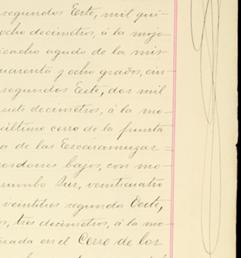 segundos Este, mil qui-
ocho decimetros, á la mojo-
icacho agudo de la mis-
uarenta y ocho grados, cin-
segundos Este, dos mil
siete decimetros, á la mo-
último cerro de la punta
a de las Escaramuzas
cordones bajos, con mo-
rumbo Sur, veinticuatro
veintitres segundos Este,
os, tres decimetros, á la mo-
cada en el Cerro de los